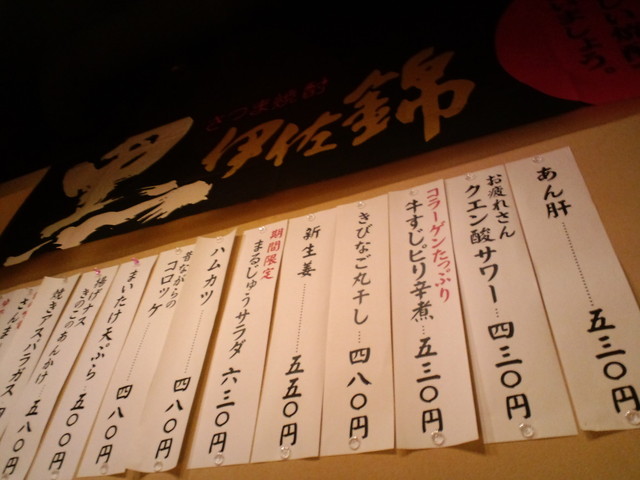 さつま焼酎
黒
伊佐錦
いましょう。
あん肝 五三〇円
お疲れさん
クエン酸サワー 四三〇円
コラーゲンたっぷり
牛すじピリ辛煮 五三〇円
きびなご丸干し 四八〇円
新生姜 五五〇円
期間限定
まるじゅうサラダ 六三〇円
ハムカツ 四八〇円
昔ながらの
コロッケ 四八〇円
まいたけ天ぷら 五〇〇円
揚げナス
きのこのあんかけ 五八〇円
焼きアスパラガス 円
さんま